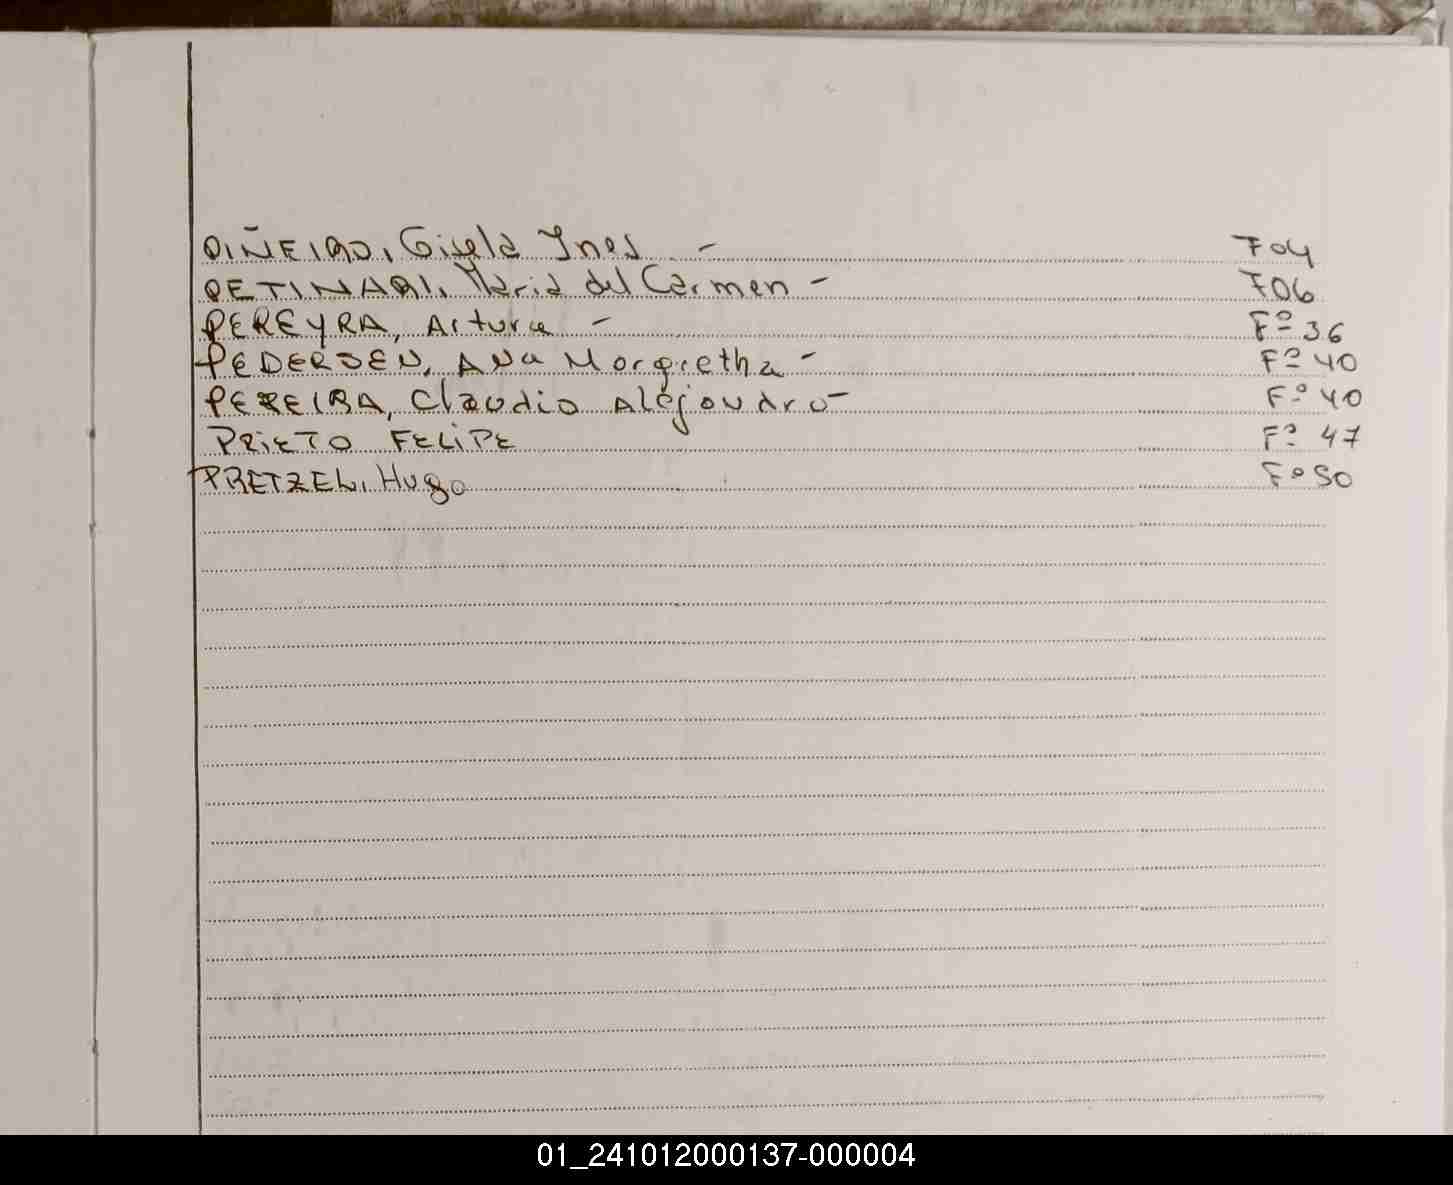 PIÑEIRO, Gisela Ines - F04
PETINARI, Maria del Carmen - F06
PEREYRA, Arturo - Fº 36
PEDERSEN, ANa Margretha - Fº 40
PEREIRA, Claudio Alejandro - Fº 40
PRiETO FELiPE Fº 47
PRETZEL, Hugo Fº 50
01_241012000137-000004